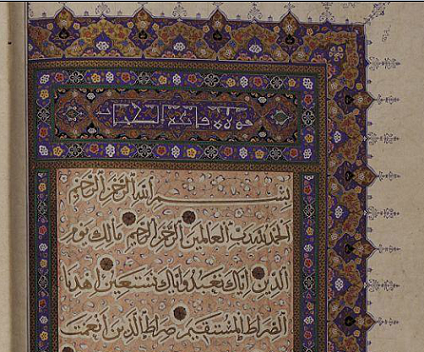 سورة فاتحة الكتاب
بسم الله الرحمن الرحيم
الحمد لله رب العالمين الرحمن الرحيم مالك يوم
الدين اياك نعبد واياك نستعين اهدنا
الصراط المستقيم صراط الذين انعمت